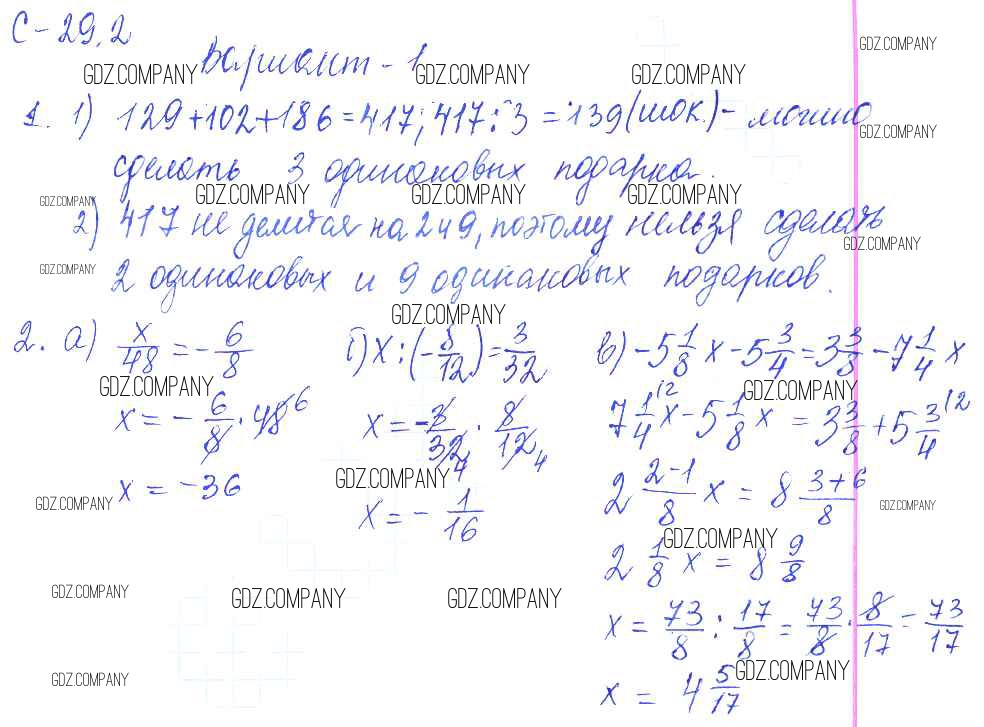 С-29.2
GDZ.COMPANY
GDZ.COMPANY Вариант - 1 GDZ.COMPANY GDZ.COMPANY
1. 1) 129+102+186=417; 417:3=139(шок.)- можно
GDZ.COMPANY
сделать 3 одинаковых подарка.
GDZ.COMPANY GDZ.COMPANY GDZ.COMPANY GDZ.COMPANY
2) 417 не делится на 2 и 9, поэтому нельзя сделать
GDZ.COMPANY
GDZ.COMPANY 2 одинаковых и 9 одинаковых подарков.
GDZ.COMPANY
2. а) x/48 = -6/8 б) x:(-8/12)=3/32 в) -5 1/8 x - 5 3/4 = 3 3/8 - 7 1/4 x
GDZ.COMPANY GDZ.COMPANY
x = -6/8 · 48 6 x = -3/32 4 · 8/12 4 7 1/4 \2 x - 5 1/8 x = 3 3/8 + 5 3/4 \2
GDZ.COMPANY
x = -36 x = -1/16 2 (2-1)/8 x = 8 (3+6)/8
GDZ.COMPANY GDZ.COMPANY
GDZ.COMPANY
2 1/8 x = 8 9/8
GDZ.COMPANY GDZ.COMPANY GDZ.COMPANY
x = 73/8 : 17/8 = 73/8 · 8/17 = 73/17
GDZ.COMPANY GDZ.COMPANY
x = 4 5/17